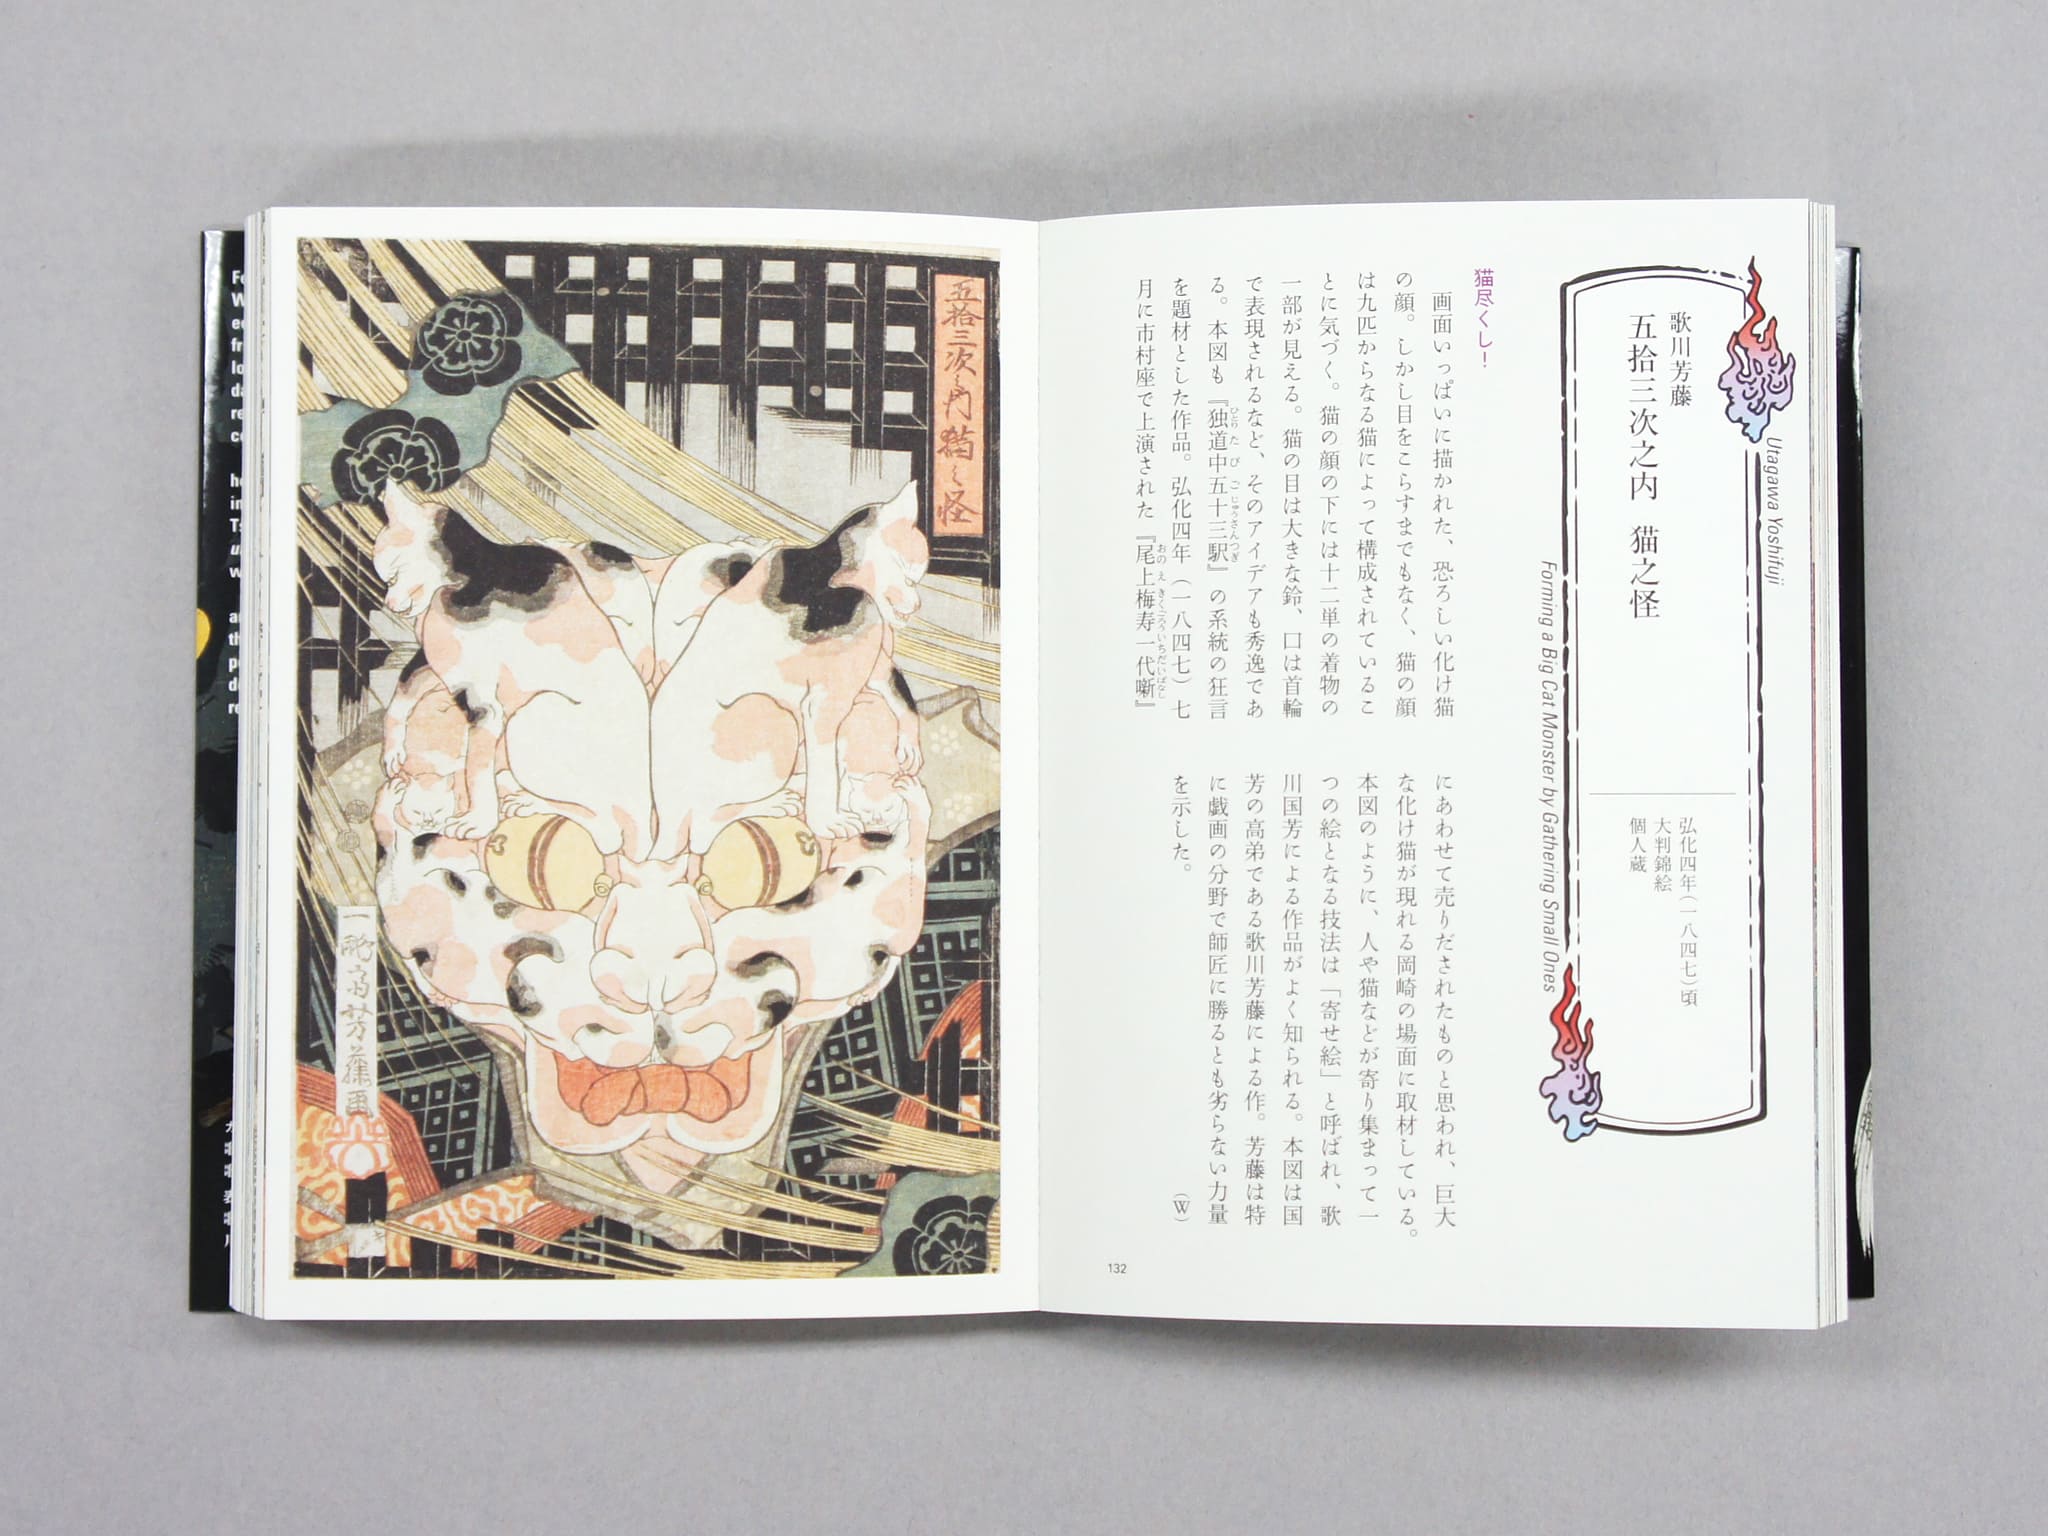 歌川芳藤
五拾三次之内 猫之怪
弘化四年(一八四七)頃
大判錦絵
個人蔵
Utagawa Yoshifuji
Forming a Big Cat Monster by Gathering Small Ones
猫尽くし!
画面いっぱいに描かれた、恐ろしい化け猫
の顔。しかし目をこらすまでもなく、猫の顔
は九匹からなる猫によって構成されているこ
とに気づく。猫の顔の下には十二単の着物の
一部が見える。猫の目は大きな鈴、口は首輪
で表現されるなど、そのアイデアも秀逸であ
る。本図も『独道中五十三駅』の系統の狂言
ひとりたびごじゅうさんつぎ
を題材とした作品。弘化四年(一八四七)七
月に市村座で上演された『尾上梅寿一代噺』
おのえきくごろういちだいばなし
にあわせて売りだされたものと思われ、巨大
な化け猫が現れる岡崎の場面に取材している。
本図のように、人や猫などが寄り集まって一
つの絵となる技法は「寄せ絵」と呼ばれ、歌
川国芳による作品がよく知られる。本図は国
芳の高弟である歌川芳藤による作。芳藤は特
に戯画の分野で師匠に勝るとも劣らない力量
を示した。
(W)
132
五拾三次之内猫之怪
一鵬斎芳藤画